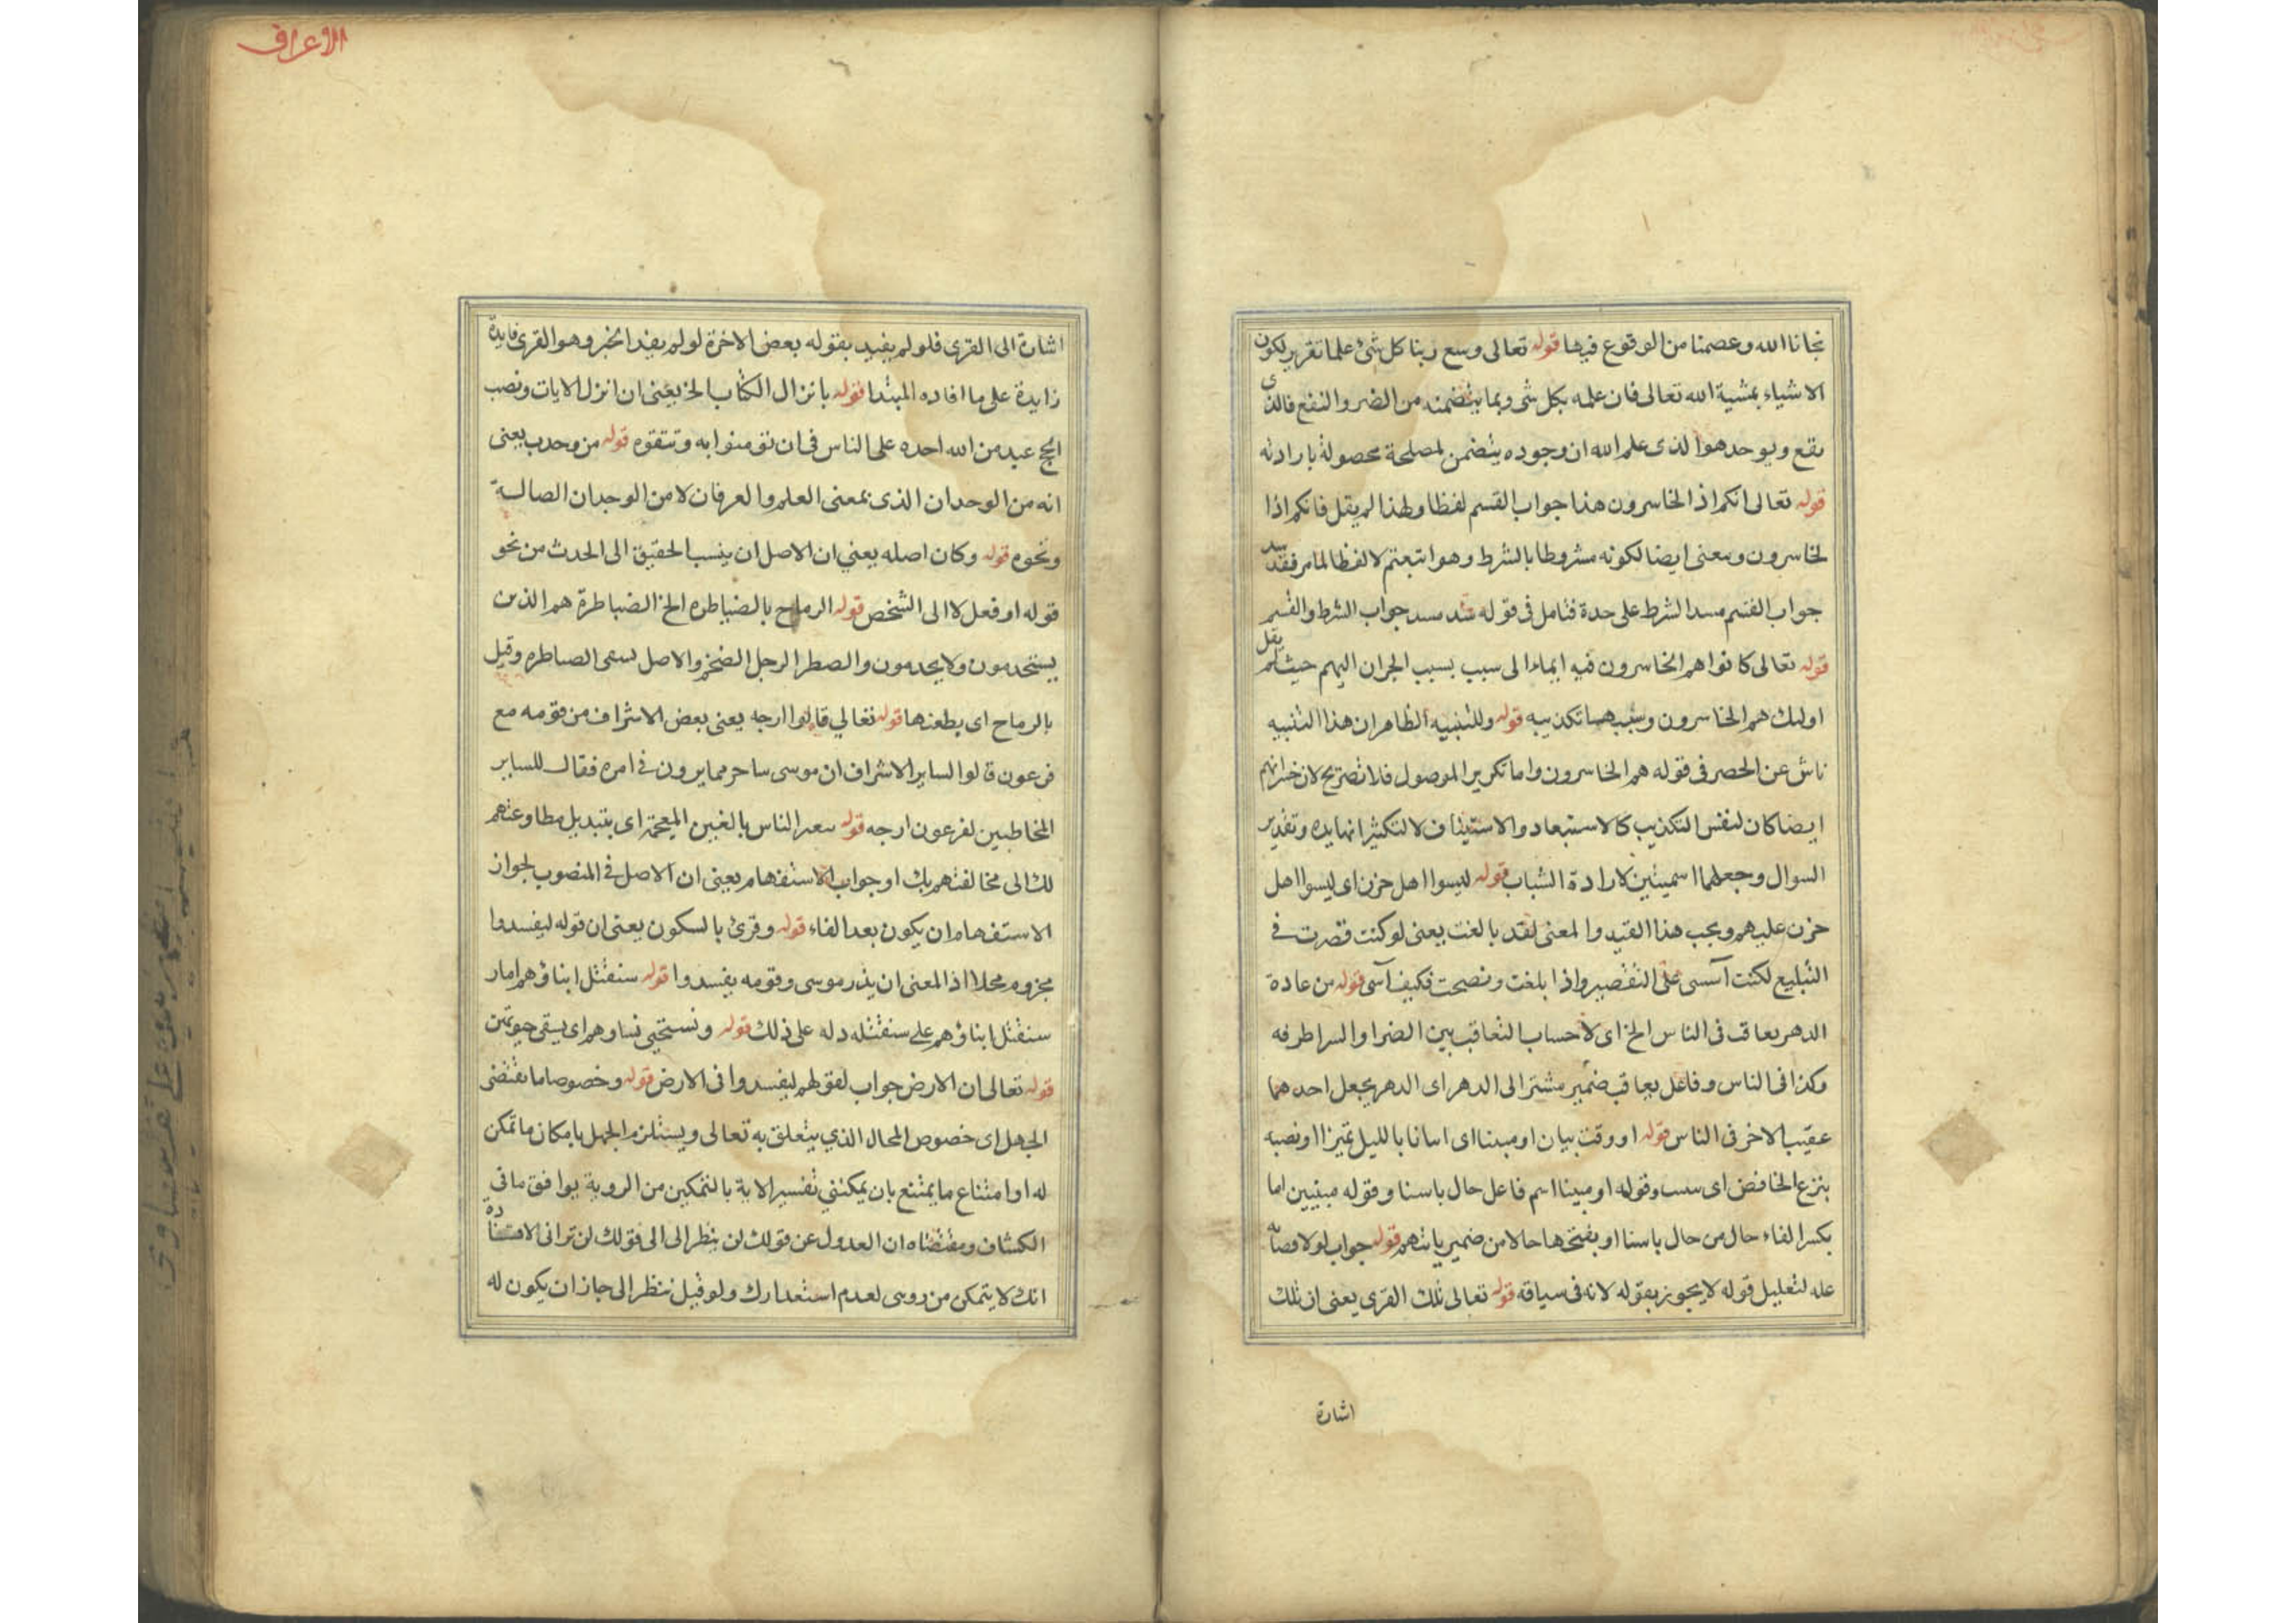 نجانا الله وعصمنا من الوقوع فيها قوله تعالى وسع ربنا كل شئ علما تقرير لكون
الاشياء بمشية الله تعالى فان علمه بكل شى وبما يتضمنه من الضر والنفع فالذى
يقع ويوحد هو الذى علم الله ان وجوده يتضمن لمصلحة محصولة بارادته
قوله تعالى انكم اذ الخاسرون هذا جواب القسم لفظا ولهذا لم يقل فانكم اذا
لخاسرون ومعنى ايضا لكونه مشروطا بالشرط وهو اتبعتم لا لفظا لما مر فقد سد
جواب القسم مسد الشرط على حدة فتامل فى قوله سد مسد جواب الشرط والقسم
قوله تعالى كانوا هم الخاسرون فيه ايماء الى سبب بسبب الجران اليهم حيث لم يقل
اوليك هم الخاسرون وسبب تكذيبه قوله وللتنبيه الظاهر ان هذا التنبيه
ناش عن الحصر فى قوله هم الخاسرون واما تكرير الموصول فلا تصريح لان خسرانهم
ايضا كان لنفس التكذيب كالاستبعاد والاستيناف لا لتكثير وتقدير
السوال وجعلهما اسميتين لارادة الشباب قوله ليسوا اهل حزن اى ليسوا اهل
حزن عليهم ويجب هذا القيد والمعنى لقد بالغت يعنى لو كنت قصرت فى
التبليغ لكنت آسى على التقصير واذا بلغت ونصحت فكيف آسى قوله من عادة
الدهر يعاقب فى الناس الخ اى لاحساب التعاقب بين الضرا والسرا طرفه
وكذا فى الناس وفاعل يعاقب ضمير مشتر الى الدهر اى الدهر يجعل احدهما
عقيب الاخر فى الناس قوله او وقت بيان او مبيتا اى اسانا بالليل تميزا او نصبه
بنزع الخافض اى وقوله او مبيتا اسم فاعل حال باسنا وقوله مبيتين اما
بكسر الفاء حال من حال باسنا او بفتحها حالا من ضمير ياتيهم قوله جواب لو لافضائه
عله لتعليل قوله لا يجوز بقوله لانه فى سياقه قوله تعالى تلك القرى يعنى ان تلك
اشارة
الاعراف
اشارة الى القرى فلو لم يفيد بقوله بعض الاخرة لو لم يفد الخبر وهو القرى فايدة
زايدة على ما افاده المبتدا قوله بانزال الكتاب الخ يعنى ان انزل الايات ونصب
الحج عيد من الله احده على الناس فى ان تؤمنوا به وتتقوه قوله من وجدب يعنى
انه من الوحدان الذى بمعنى العلم والعرفان لا من الوجدان الصالـة
ونحوه قوله وكان اصله يعني ان الاصل ان ينسب الحقيق الى الحدث من نحو
قوله او فعل لا الى الشخص قوله الرماح بالضياطره الخ الضياطرة هم الذين
يستخدمون ولا يخدمون والصطر الرجل الضخم والاصل الصياطره وقيل
بالرماح اى يطعنها قوله تعالي قالوا ارجه يعنى بعض الاشراف من قومه مع
فرعون قالوا لساير الاشراف ان موسى ساحر مما يرون فى امره فقال للساير
المخاطبين لفرعون ارجه قوله سعر الناس بالغين المعجمة اى بتبديل مطاوعتهم
لك الى مخالفتهم بك او جواب الاستفهام يعنى ان الاصل فى المنصوب لجواز
الاستفهام ان يكون بعد الفاء قوله وقرئ بالسكون يعنى ان قوله ليفسدوا
مجزوم محلا اذ المعنى ان يذر موسى وقومه يفسدوا قوله سنقتل ابناؤهم امار
سنقتل ابناؤهم على سنقتله دله على ذلك قوله ونستحيى نساوهم اى يستبقى
قوله تعالى ان الارض جواب لقولهم ليفسدوا فى الارض قوله وخصوصا ما تقتضى
الجهل اى خصوص المحال الذي يتعلق به تعالى ويستلزم الجهل بامكان ما تمكن
له او امتناع ما يمتنع بان يمكننى تفسير الاية بالتمكين من الروية يوافق ما فى
الكشاف ومقتضاه ان العدول عن قولك لن ينظر الى الى قولك لن ترانى لافادة
انك لا يتمكن من روسى لعدم استعدارك ولو قيل ننظر الى جاز ان يكون له